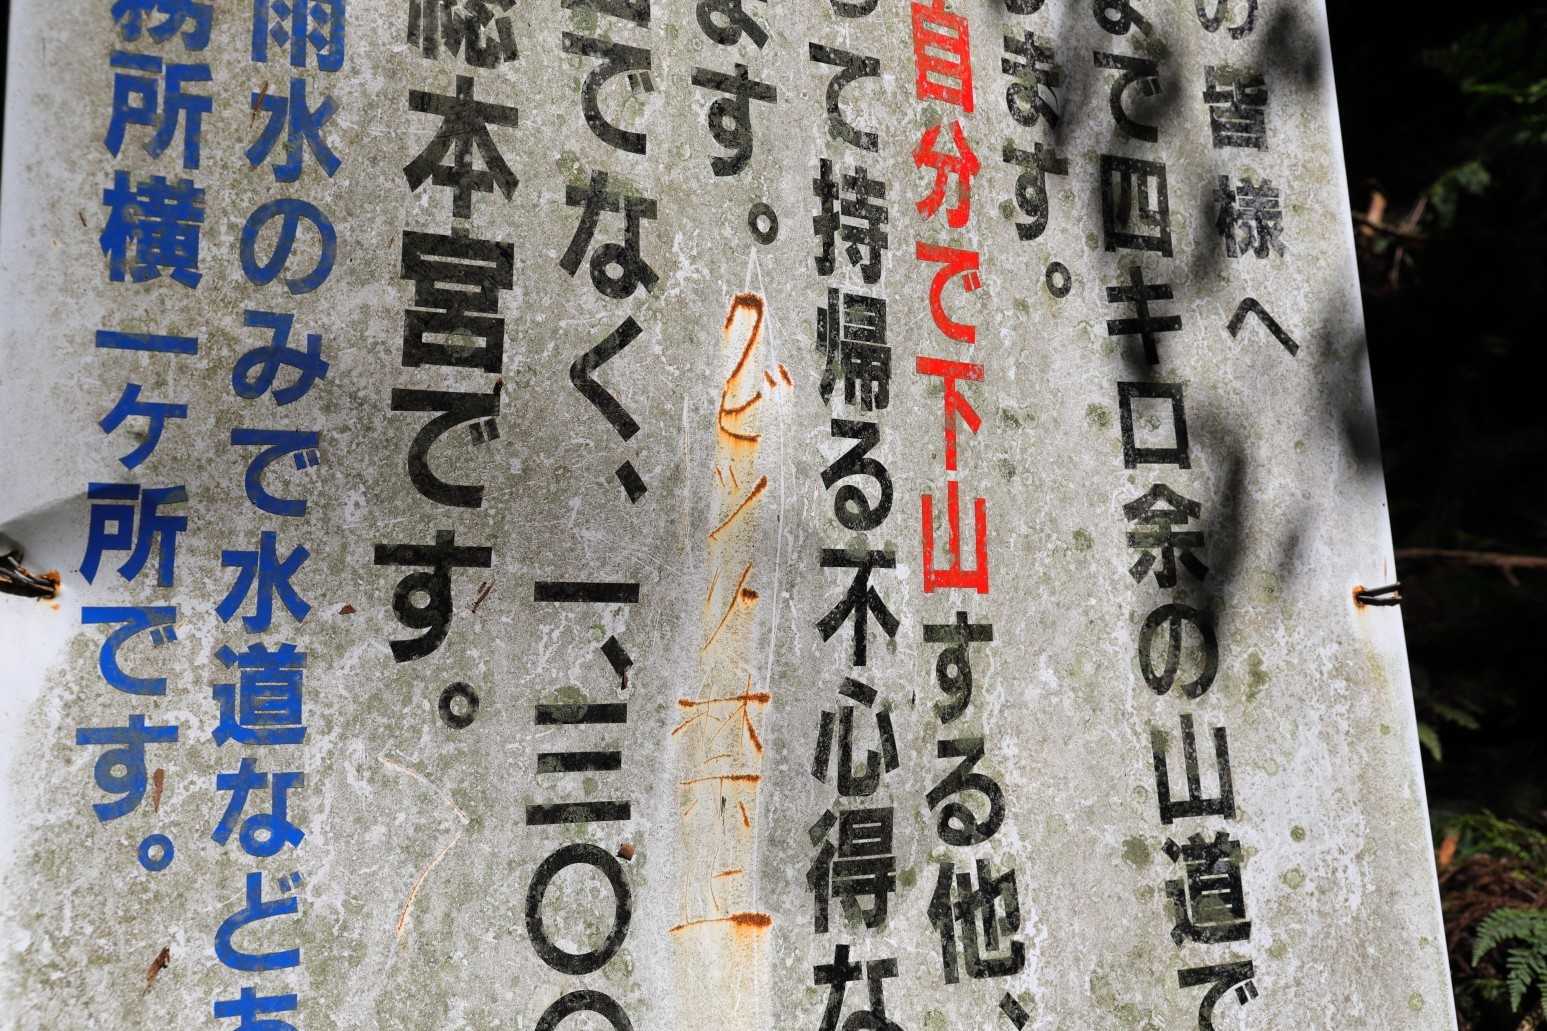 の皆様へ
まで四キロ余の山道で
ります。
自分で下山する他、
って持帰る不心得な
ます。
でなく、一、三〇〇
総本宮です。
雨水のみで水道など
務所横一ヶ所です。